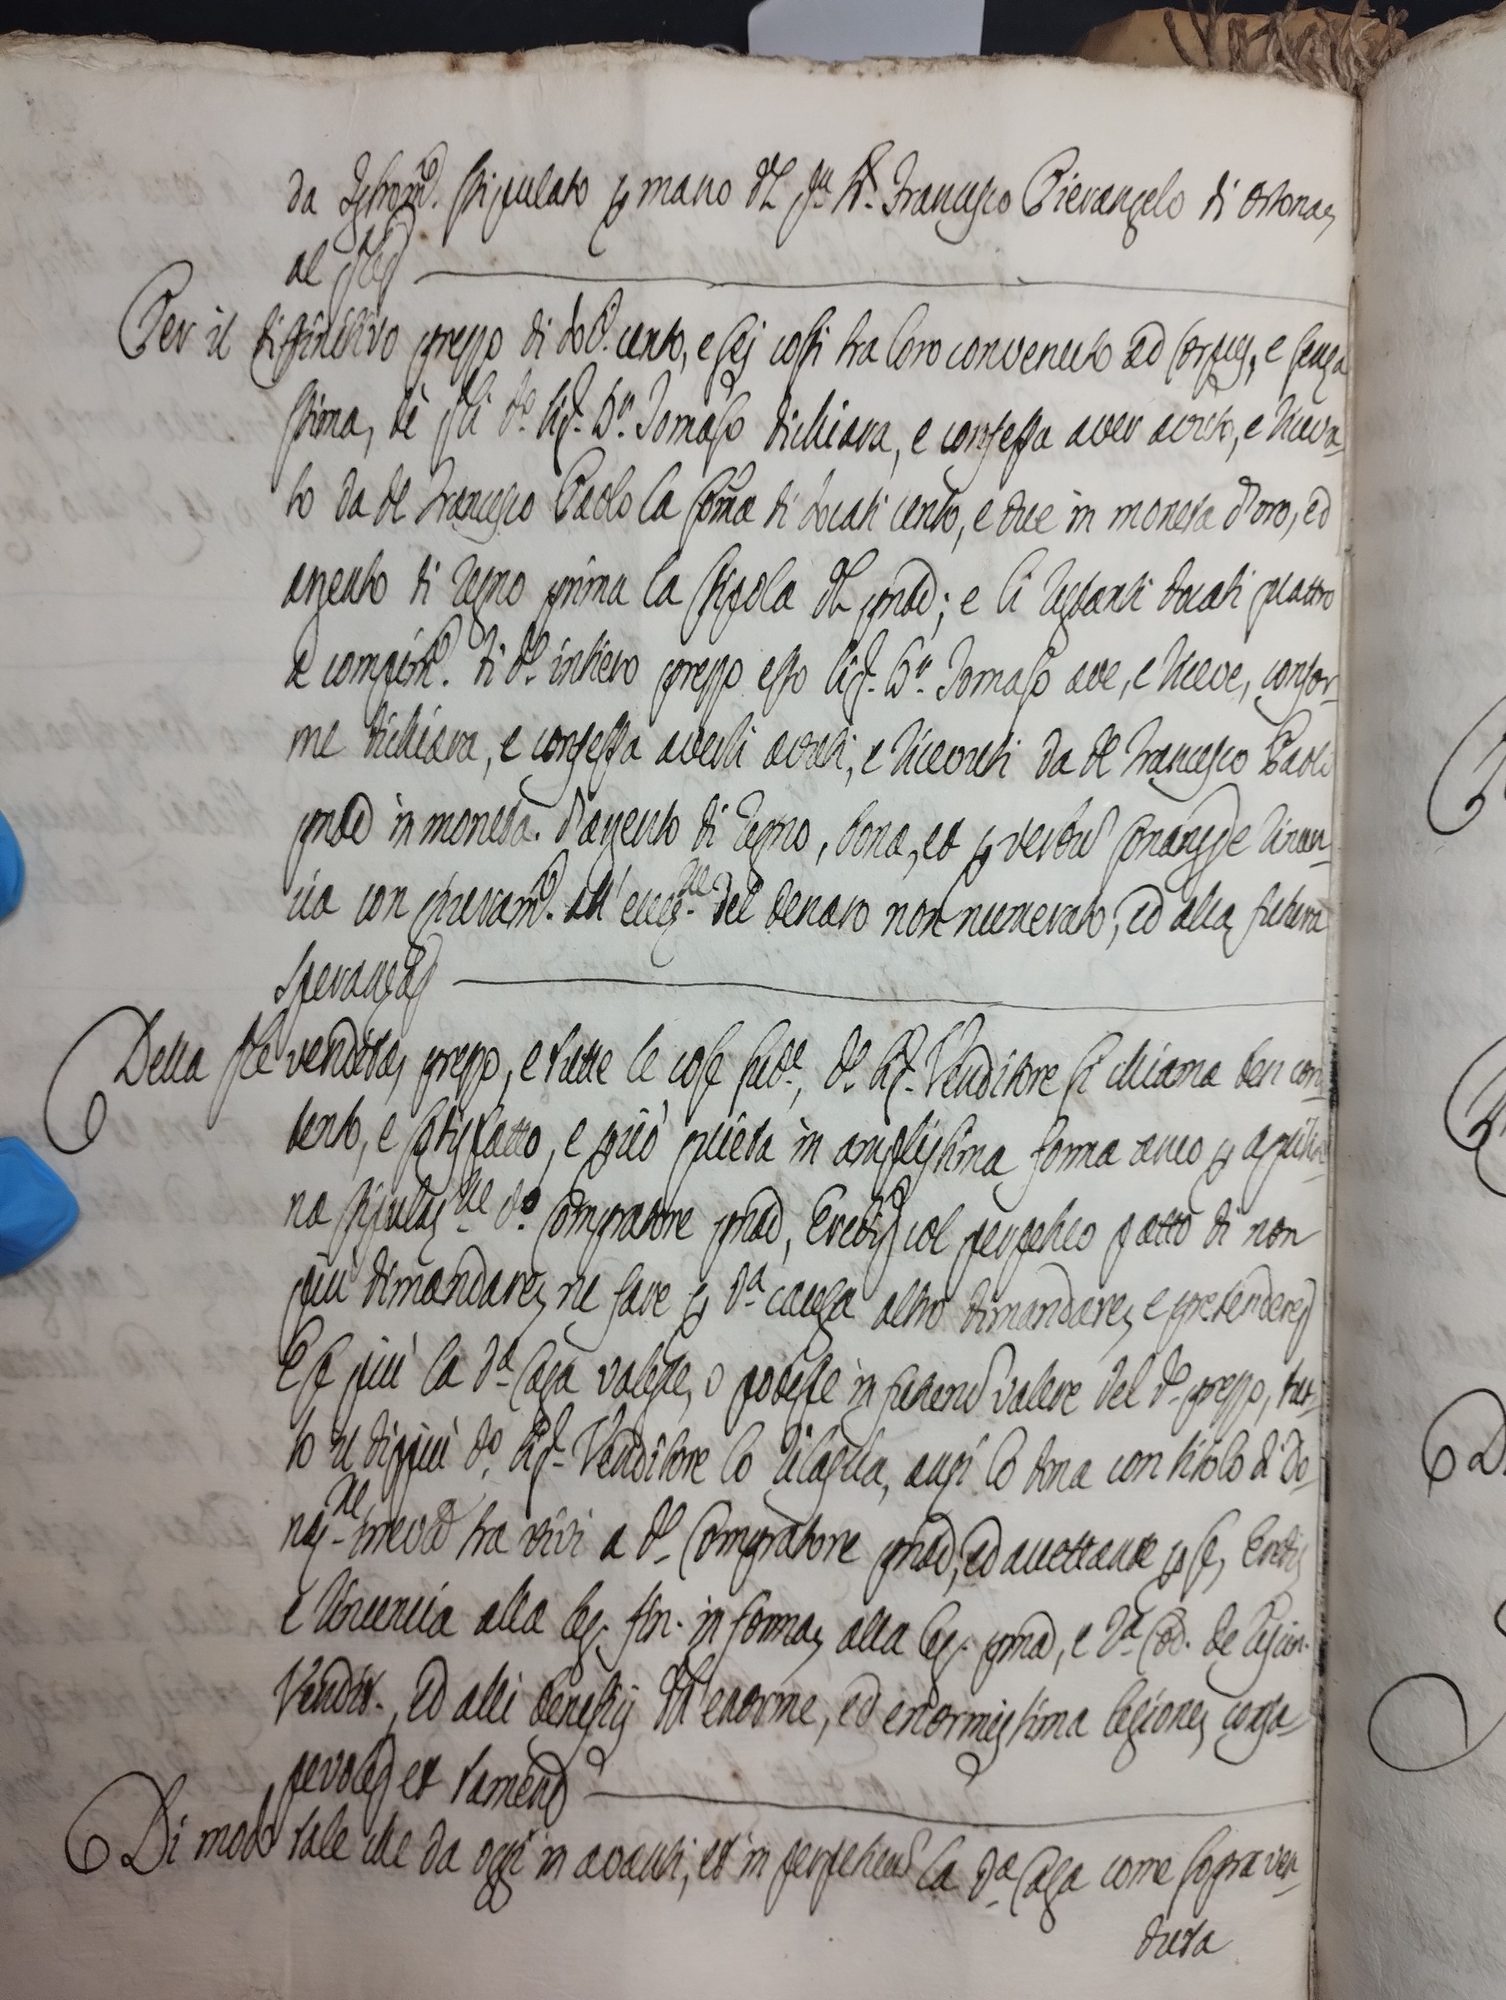 da Istrom.to stipulato p mano del q.m N.r Francesco Pierangelo di Ortona,
al q.le
Per il diffinitivo prezzo di doc.ti cento, e sei così tra loro convenuto ad corpus, e senza
stima, de q.li d.o Sig.r D.n Tomaso dichiara, e confessa aver avuto, e riceva-
to da d.o Francesco Paolo la soma di docati cento, e due in moneta d'oro, ed
argento di Regno prima la stipola del pnte; e li restanti docati quattro
a compim.to di d.o intiero prezzo esso Sig.r D.n Tomaso ave, e riceve, confor-
me dichiara, e confessa averli avuti, e ricevuti da d.o Francesco Paolo
pnte in moneta d'argento di Regno, bona, et p vertù renun-
cia con giuram.to all'ecce.ne del denaro non numerato, ed alla futura
speranza
Della q.le vendita, prezzo, e tutte le cose sud.e, d.o Sig.r Venditore si chiama ben con-
tento, e sodisfatto, e perciò quieta in amplissima forma anco p aquilia-
na stipulaz.ne d.o Compratore pnte, Eredi col perpetuo patto di non
più dimandare, ne fare p d.a causa altro dimandare, e pretendere
E se più la d.a Casa valesse, o potesse in futuro valere del d.o prezzo, tut-
to il dippiù d.o Sig.r Venditore lo rilascia, anzi lo dona con titolo di do-
naz.ne irrevo.le tra vivi a d.o Compratore pnte, ed accettante p se, Eredi
e rinuncia alla leg. fin. in forma, alla leg. pma, e 2.a Cod. de rescin.
Vendit., ed alli beneficij dell'enorme, ed enormissima lesione, consa-
pevole et tamen
Di modo tale che da oggi in avanti, et in perpetuum la d.a Casa come sopra ven-
duta